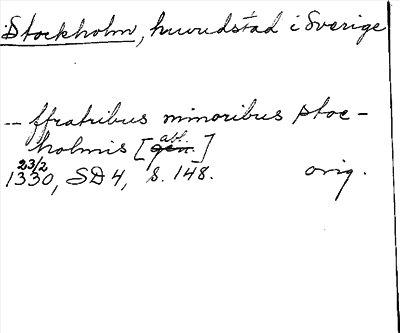 Stockholm, huvudstad i Sverige
-- ffratribus minoribus stoc-
holmis [gen. abl.]
1330 23/2, SD 4, s. 148. orig.